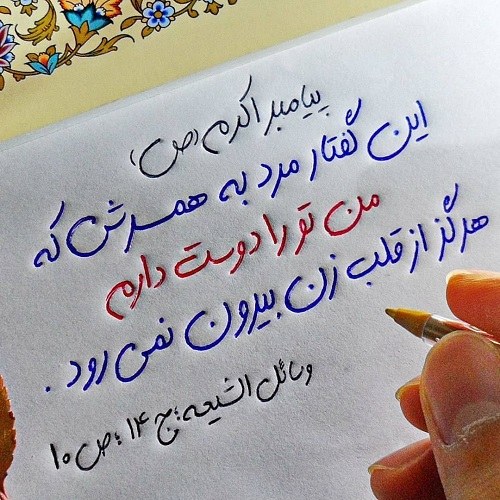 پیامبر اکرم (ص)
این گفتار مرد به همسرش که
من تو را دوست دارم
هرگز از قلب زن بیرون نمی رود .
وسائل الشیعه؛ ج ۱۴؛ ص ۱۰